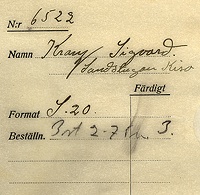 N:r 6522
Namn Kranz Sigvard.
Landstugan Miro
Färdigt
Format S. 20.
Beställn. Port 2-7 3.